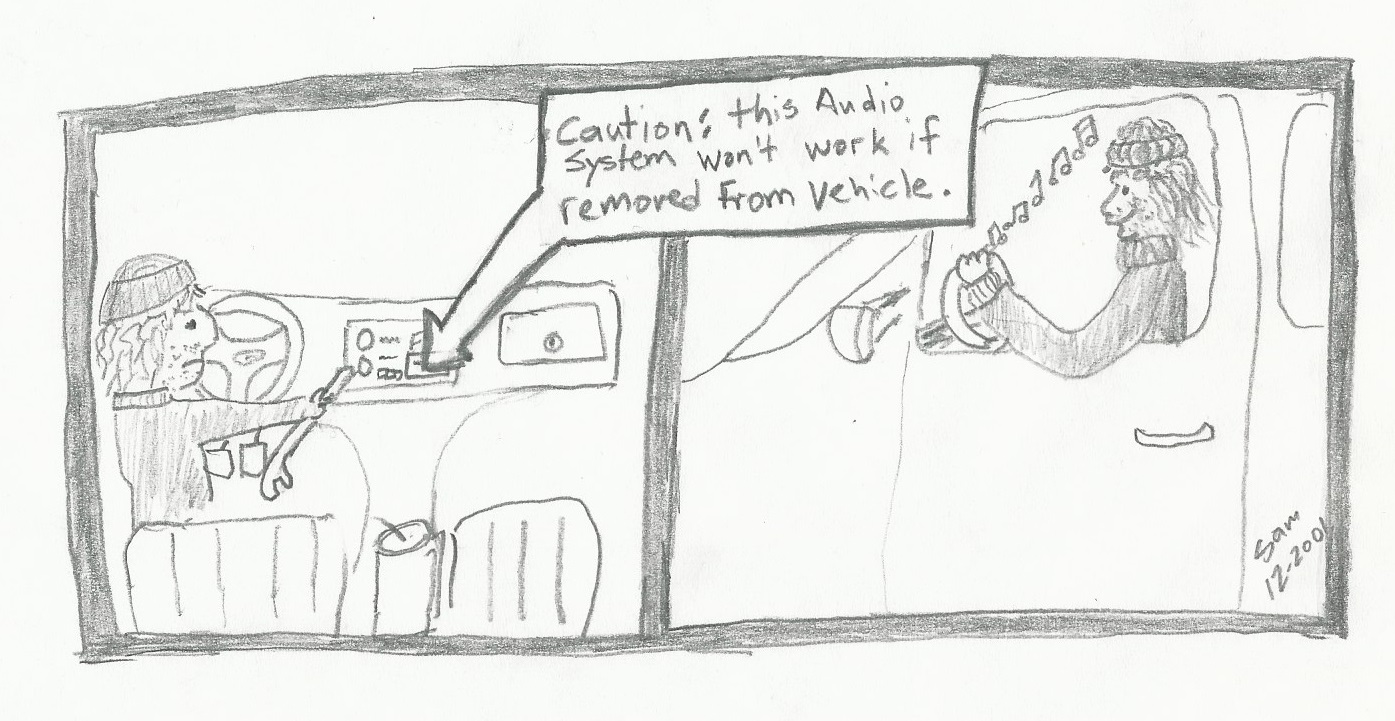 Caution: this Audio
System won't work if
removed From Vehicle.
Sam
12-2001